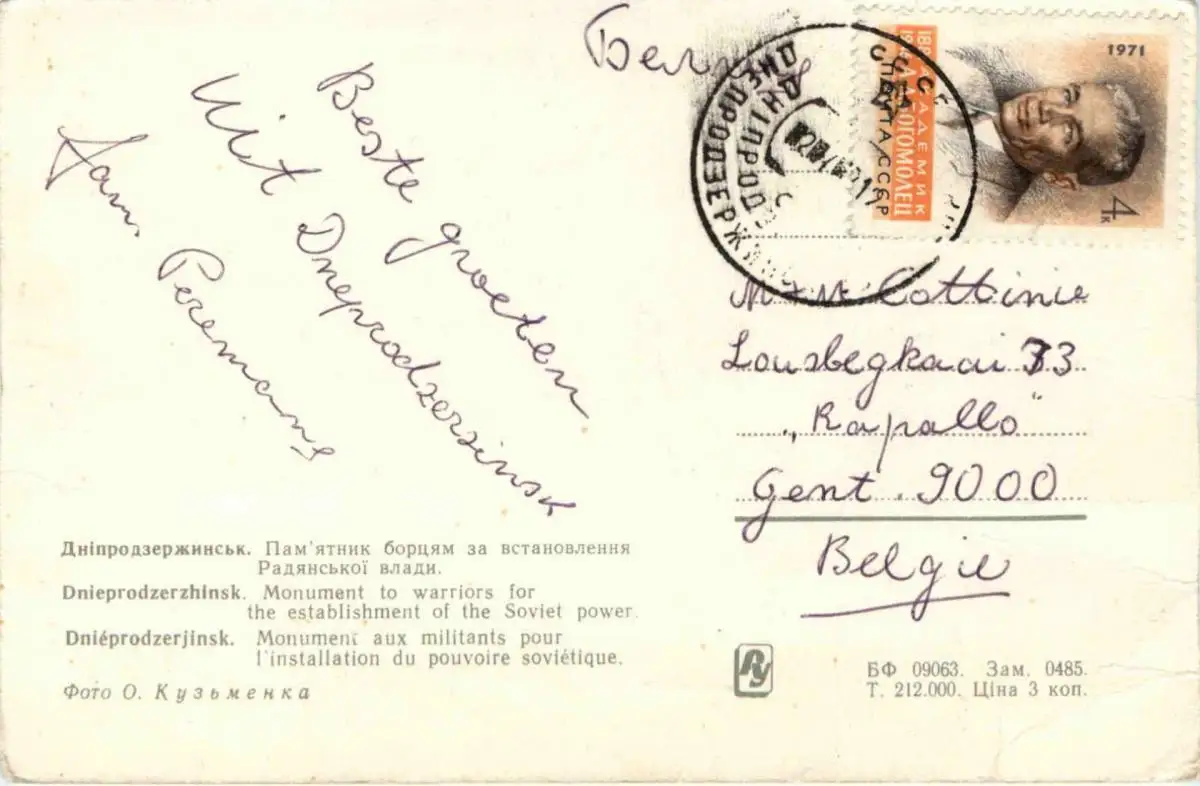 Beste groeten
Uit Dneprodzersinsk
Fam. Peremans
1971
АКАДЕМИК
А.А.БОГОМОЛЕЦ
4к
ПОШТА СССР
M+M Cottinie
Lousbegkaai 33
„Rapallo"
Gent. 9000
Belgie
Дніпродзержинськ. Пам'ятник борцям за встановлення
Радянської влади.
Dnieprodzerzhinsk. Monument to warriors for
the establishment of the Soviet power.
Dniéprodzerjinsk. Monument aux militants pour
l'installation du pouvoire soviétique.
Фото О. Кузьменка
РУ
БФ 09063. Зам. 0485.
Т. 212.000. Ціна 3 коп.